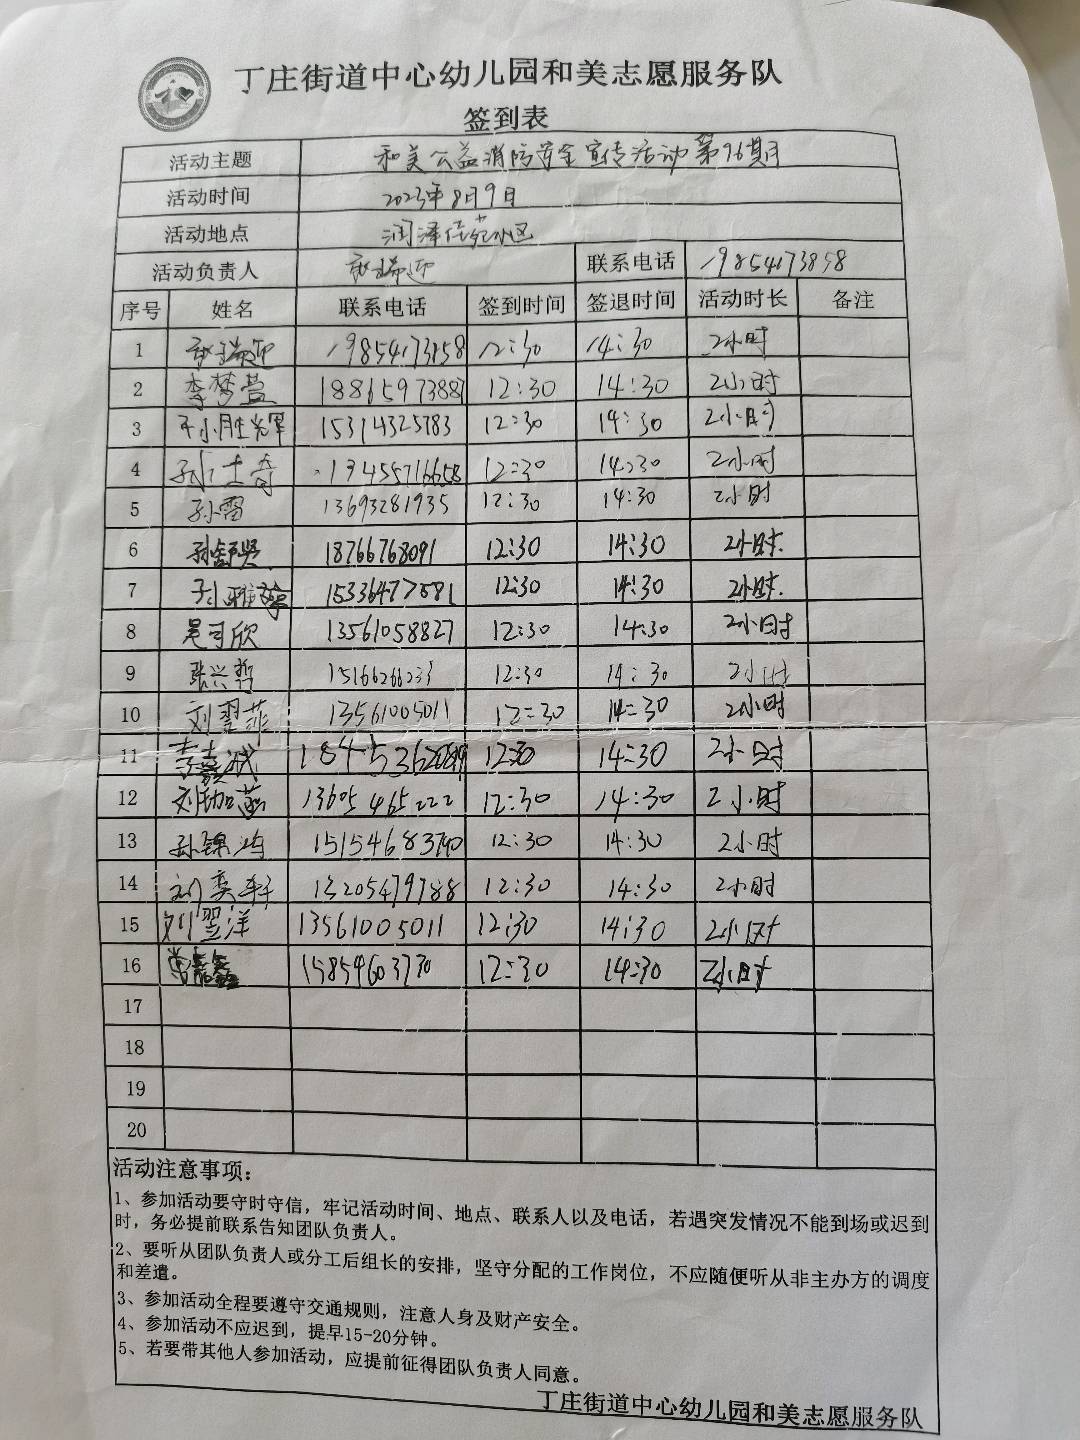 丁庄街道中心幼儿园和美志愿服务队
签到表
活动主题 和美公益消防安全宣传活动第96期
活动时间 2023年8月9日
活动地点 润泽佳苑小区
活动负责人 联系电话 19854173858
序号 姓名 联系电话 签到时间 签退时间 活动时长 备注
1 19854173858 12:30 14:30 2小时
2 李梦萱 18865973887 12:30 14:30 2小时
3 15314325783 12:30 14:30 2小时
4 孙士奇 19455716658 12:30 14:30 2小时
5 孙雷 13693281935 12:30 14:30 2小时
6 18766768091 12:30 14:30 2小时
7 孙雅婷 12:30 14:30 2小时
8 吴可欣 13561058827 12:30 14:30 2小时
9 张兴哲 15166266233 12:30 14:30 2小时
10 刘翌菲 13561005011 12:30 14:30 2小时
11 李嘉诚 12:30 14:30 2小时
12 13605465222 12:30 14:30 2小时
13 孙锦鸿 12:30 14:30 2小时
14 刘奕轩 13205479788 12:30 14:30 2小时
15 刘翌洋 13561005011 12:30 14:30 2小时
16 15854603730 12:30 14:30 2小时
17
18
19
20
活动注意事项：
1、参加活动要守时守信，牢记活动时间、地点、联系人以及电话，若遇突发情况不能到场或迟到
时，务必提前联系告知团队负责人。
2、要听从团队负责人或分工后组长的安排，坚守分配的工作岗位，不应随便听从非主办方的调度
和差遣。
3、参加活动全程要遵守交通规则，注意人身及财产安全。
4、参加活动不应迟到，提早15-20分钟。
5、若要带其他人参加活动，应提前征得团队负责人同意。
丁庄街道中心幼儿园和美志愿服务队